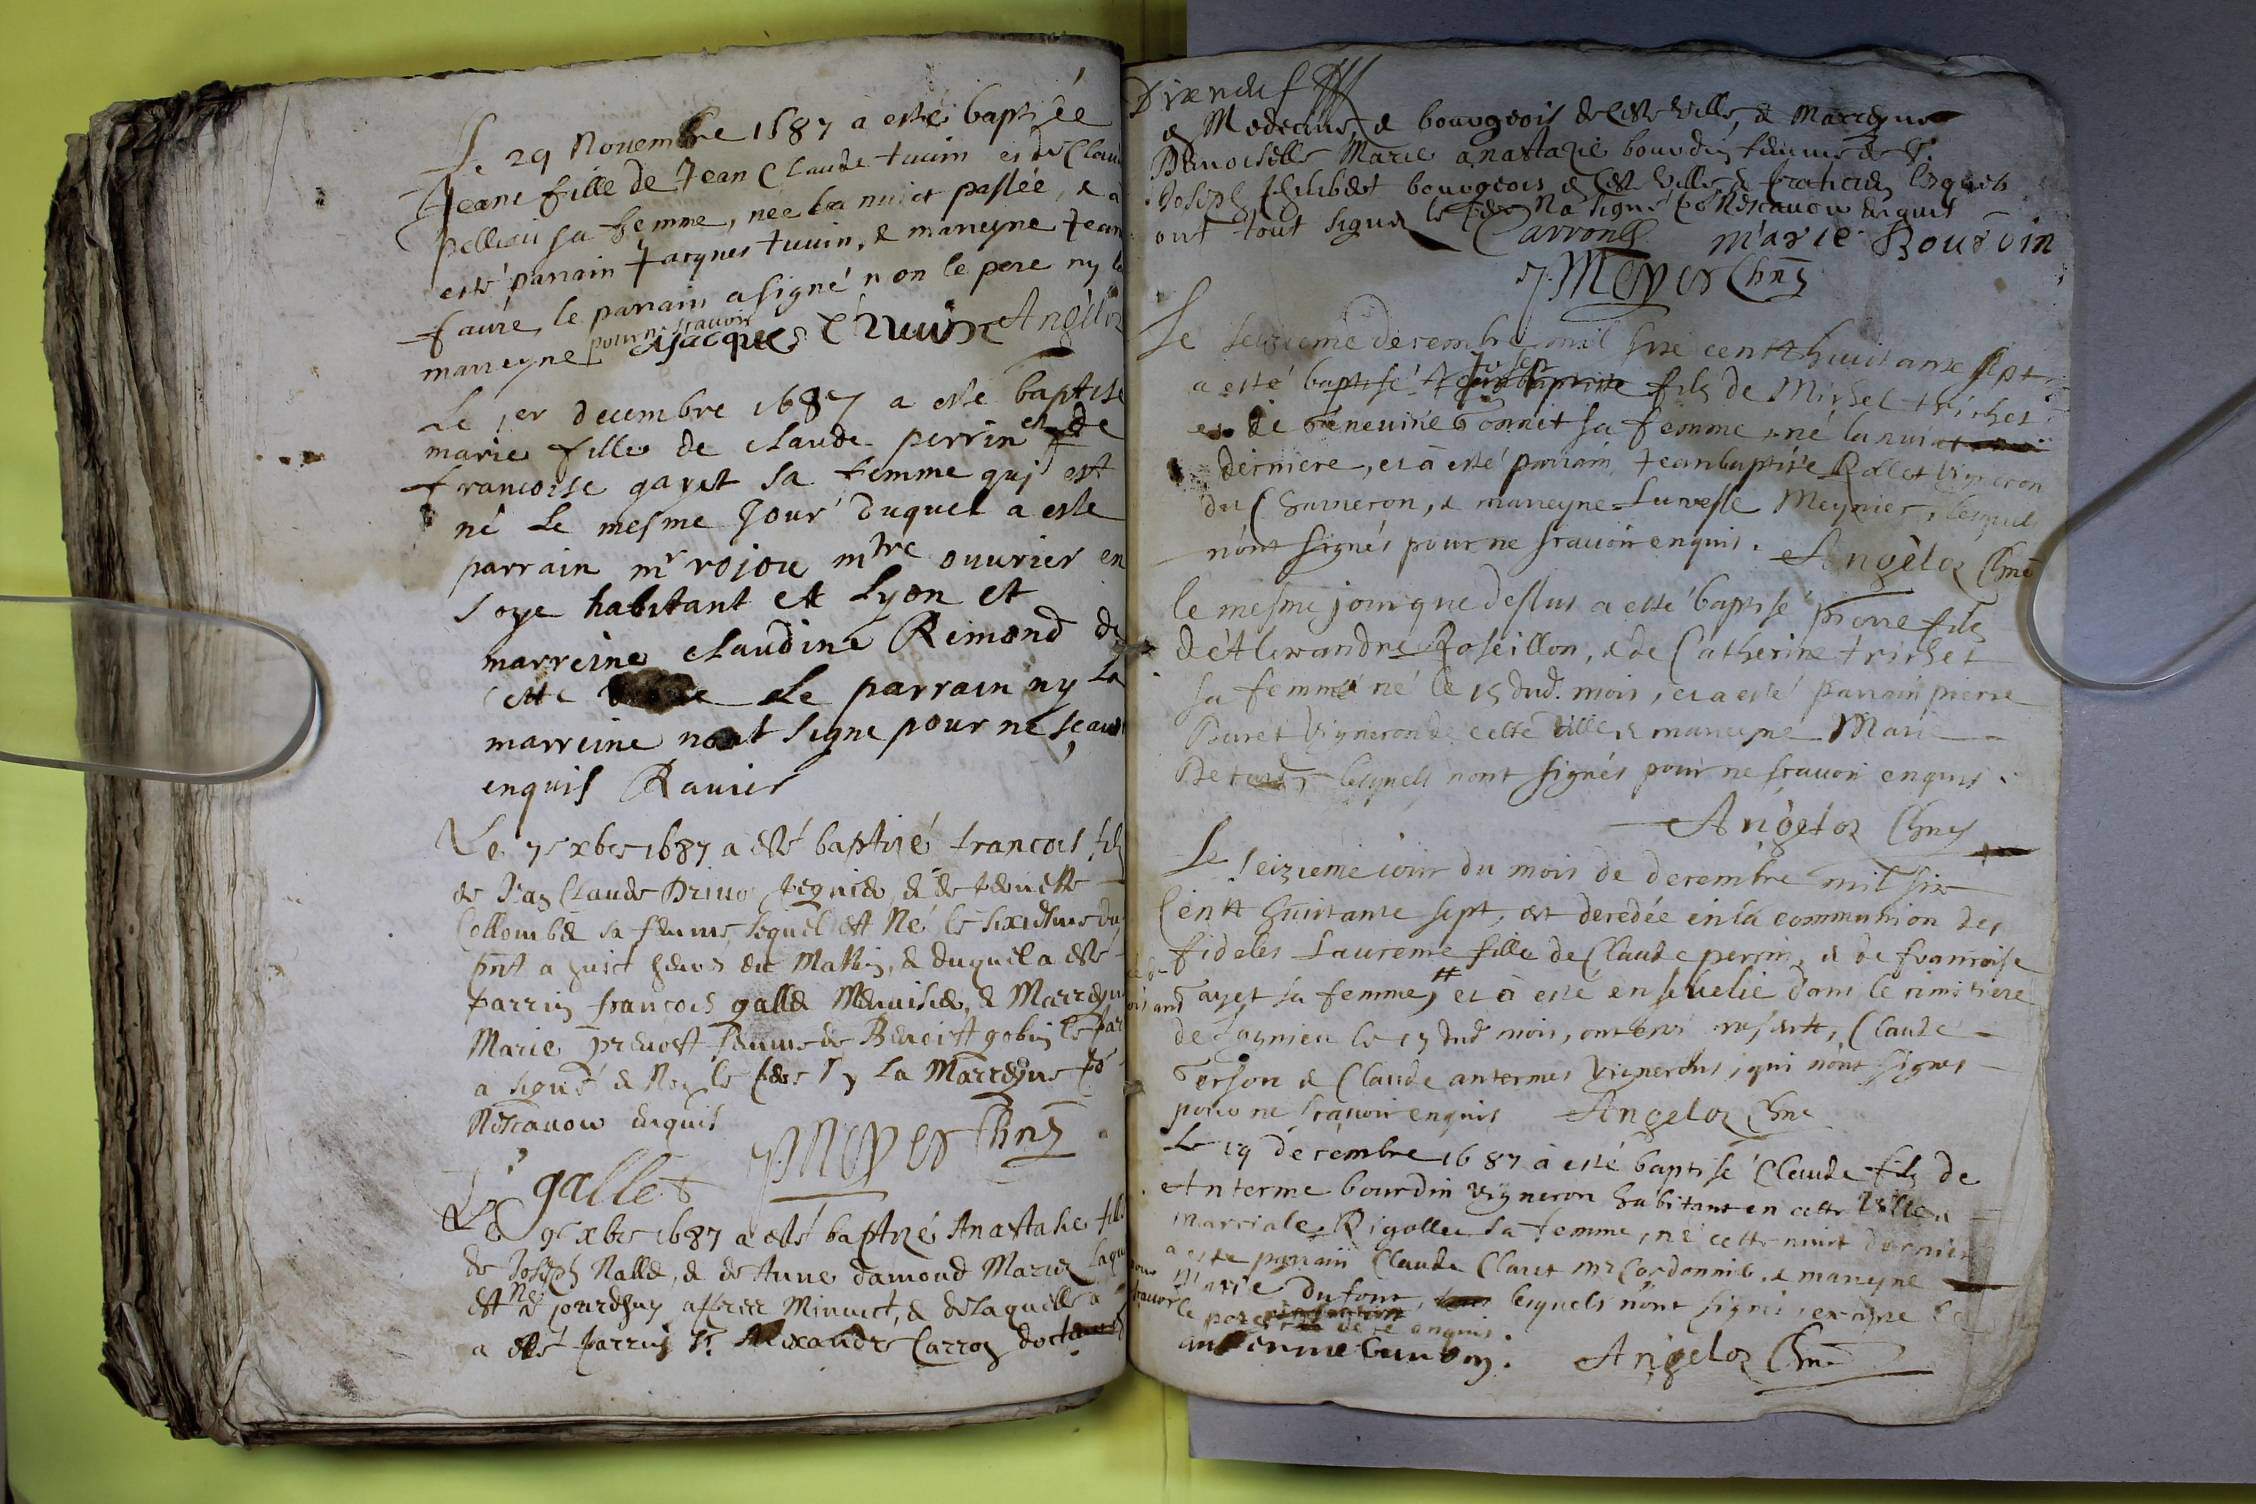 Le 29 Novembre 1687 a esté baptisée
Jeane fille de Jean Claude tuuin et de Clau
pellieu sa femme, nee la nuict passée, & a
esté parrain Jacques tuuin, & marreyne Jean
faure, le parrain a signé non le pere ny la
marreyne pour ne scauoir
Jacques Angeloz
Le 1er decembre 1687 a este baptise
marie fille de claude perrin et de
francoise gayet sa femme qui est
né le mesme Jour duquel a este
parrain mr rojou mtre ouurier en
soye habitant de Lyon et
marreine claudine Rimond de
cette le parrain ny la
marreine nont signe pour ne scau
enquis Rauier
Le 7e xbre 1687 a esté baptizé francois fils
de Jean Claude & de
Collombe sa femme, lequel est Né le sixiesme du
pnt a huict heures du Mattin, & duquel a esté
parrin francois galle Menuisier, & Marreyne
Marie preuost femme de Benoist gobin le par
a signé & Non le pere Ny La Marreyne po
Nescauoir enquis
J. Meyer Chne
galle
Le 9e xbre 1687 a esté baptizé Anastasie fille
de Joseph Nalle, & de Anne damond Mariez Laqu
est Née Jourdhuy apres Minuict, & de Laquelle a
a esté parrin Sr Alexandre Carron docteur
Dixneuf
en Medecine, & bourgeois de Ceste ville, & Marreyne
Damoiselle Marie anastazie bourdin femme de Sr
Joseph philibert bourgeois de Ceste ville & lesquels
ont tout signé le pere Na signé po Nescauoir enquis
Carron Marie Bourdin
J. Meyer Chne
Le seizieme decembre mil six centt huictante sept
a esté baptisé Joseph fils de Michel trichet
et de Geneuiue Gonnet sa femme, né la nuict
derniere, et a esté parrain Jeanbaptiste Rollet Vigneron
du Charneron, & marreyne Meynier, lesquels
n'ont signés pour ne scauoir enquis. Angeloz Chne
le mesme jour que dessus a esté baptisé pierre fils
de Alexandre Roseillon, & de Catherine trichet
sa femme né le 15 dud. mois, et a esté parrain pierre
Buret Vigneron de cette ville & marreyne Marie
lesquels nont signés pour ne scauoir enquis.
Angeloz Chne
Le seizieme iour du mois de decembre mil six
Centt huictante sept, est decedée en la communion des
fideles Laurence fille de Claude perrin, & de francoise
Gayet sa femme, et a esté enseuelie dans le cimetiere
de Lagnieu le 17 dud mois, Claude
Gerson & Claude antermes Vignerons, qui nont signes
pour ne scauoir enquis Angeloz Chne
Le 19 décembre 1687 a esté baptisé Claude fils de
Anterme bourdin vigneron habitant en cette ville &
Marciale Rigollet sa femme, né cette nuict derniere
a este parrain Claude Claret mr Cordonnie, & marreyne
Marie Dufour, lesquels n'ont signé,
le pere enquis.
Angeloz Chne